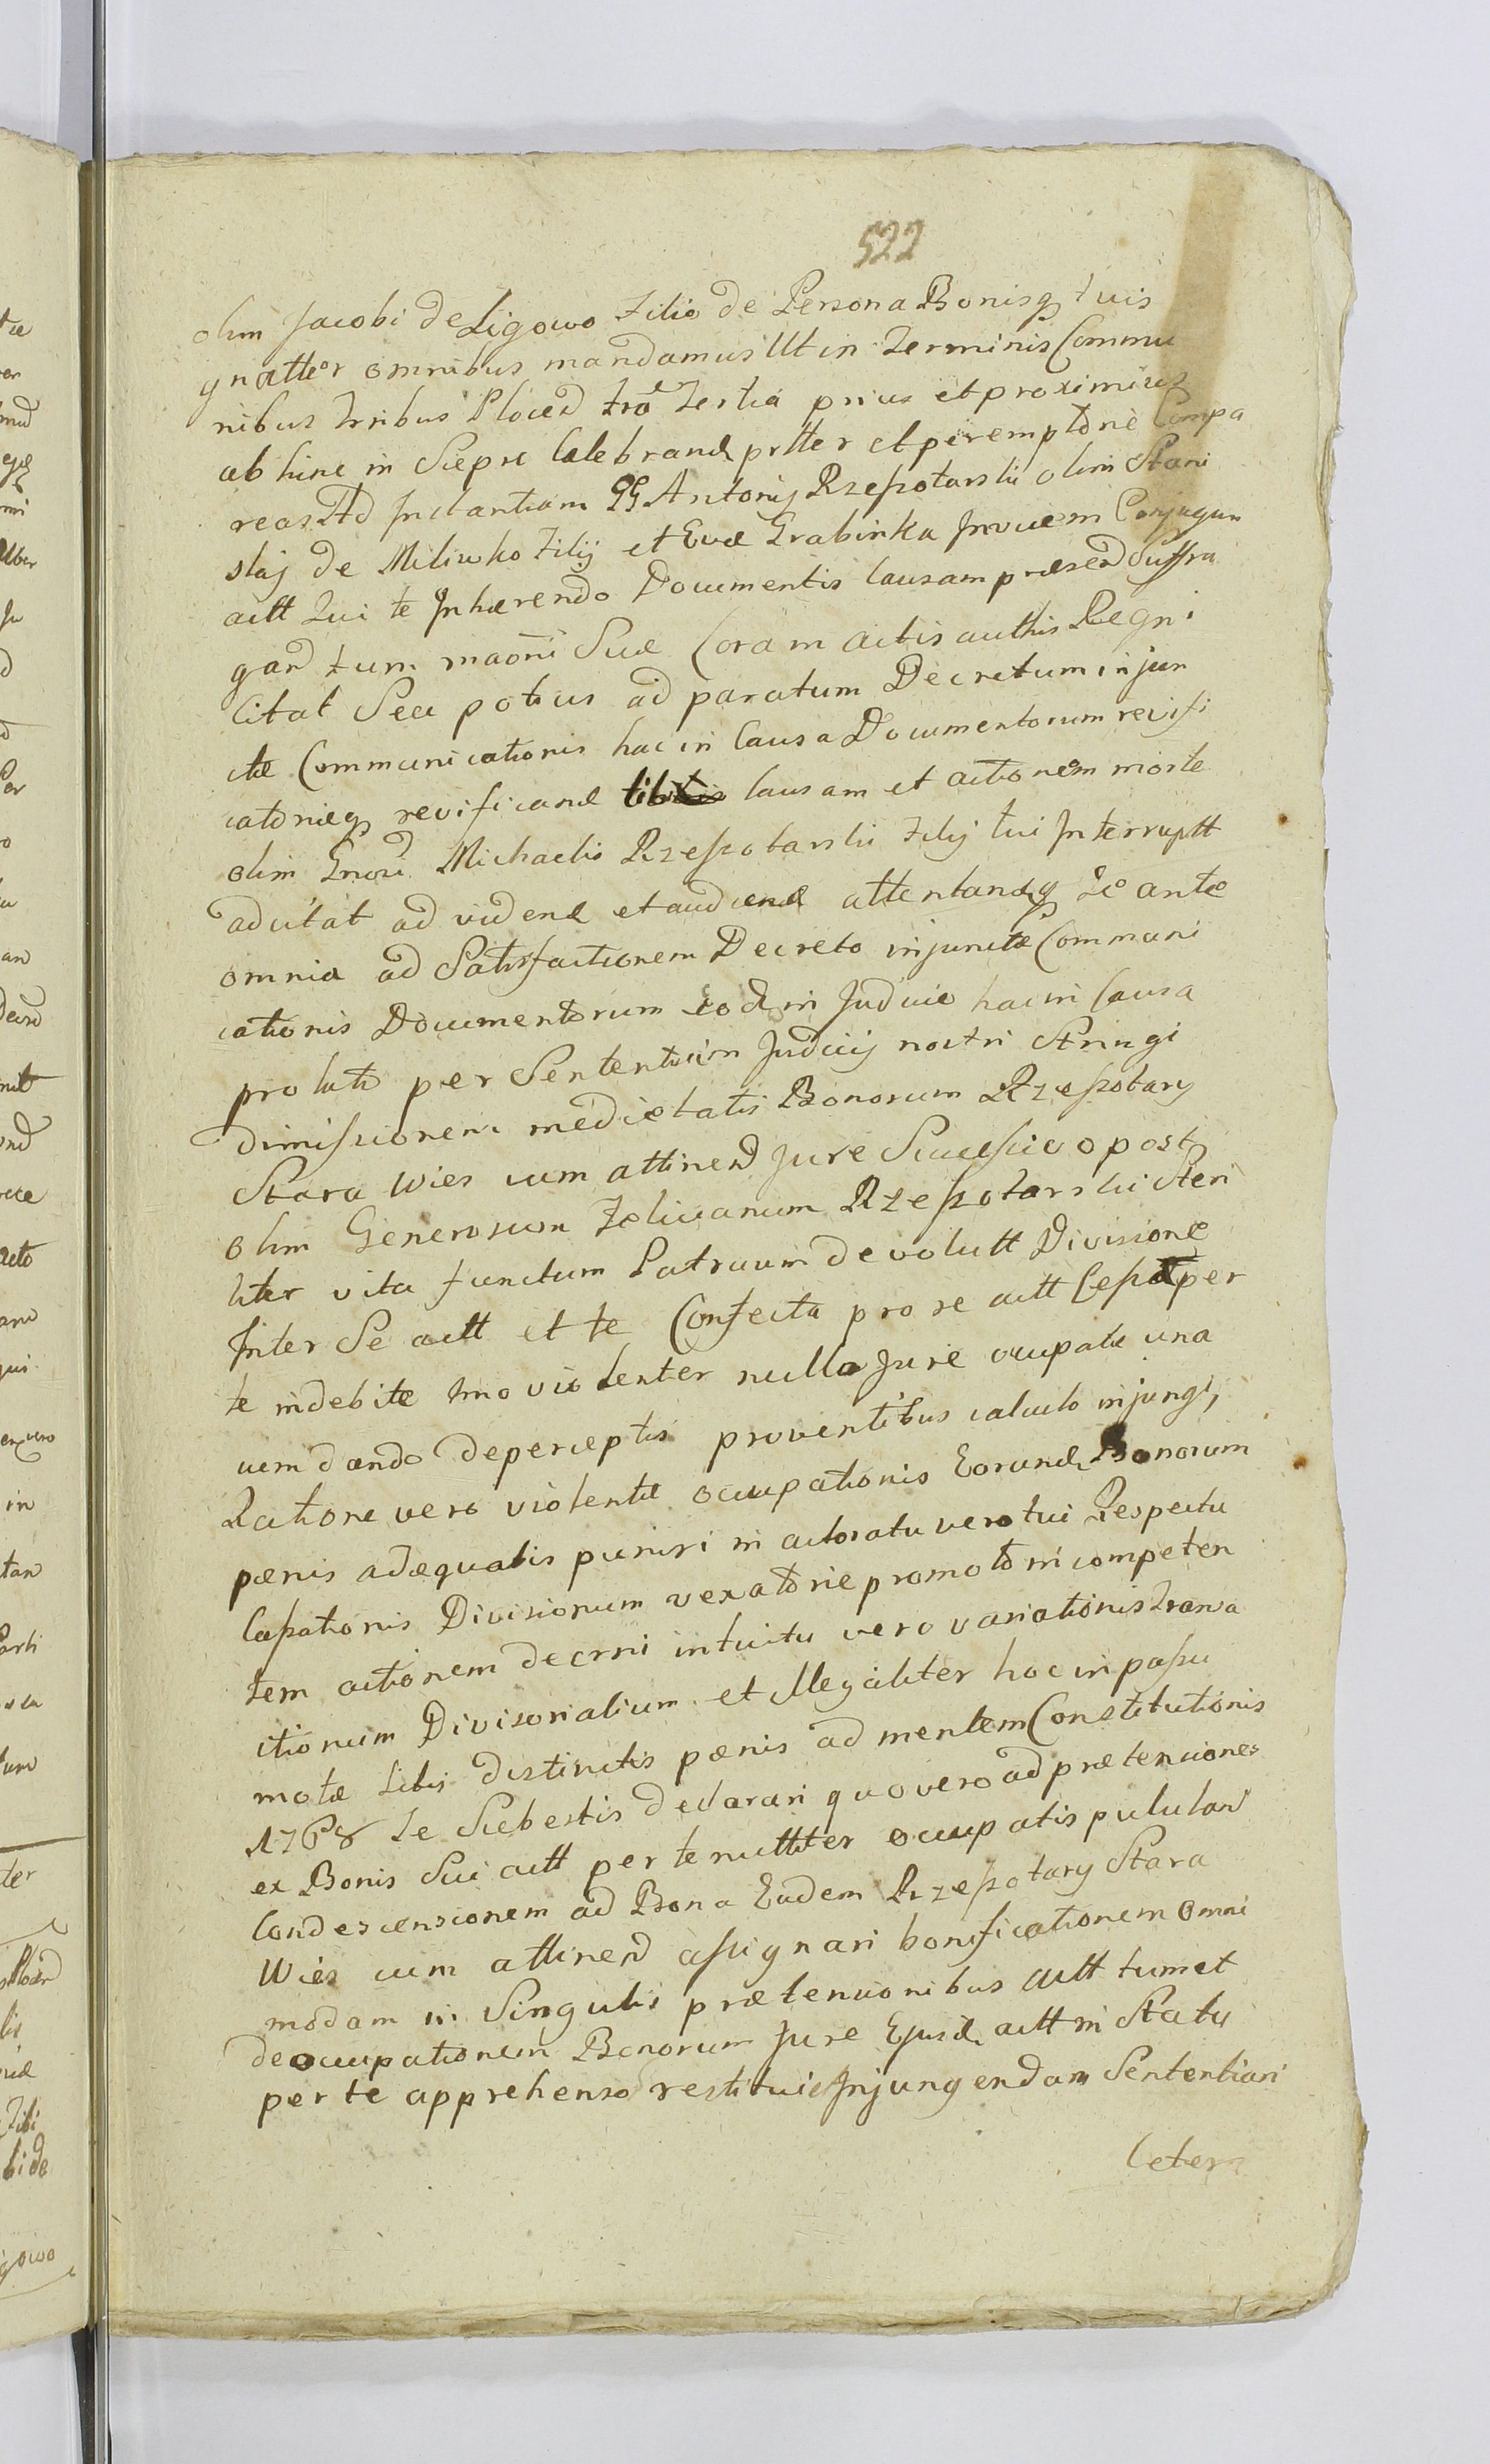 522
olim Jacobi de Ligowo Filio de Persona Bonisq tuis
gnatter omnibus mandamus Ut in Terminis Commu
nibus Tribus Plocen Fra Tertia prius et proximius
ab hinc in Siepr Celebrand prtter et peremptorie Compa
reas Ad Instantiam GG Antonij Rzeszotarski olim Stani
slaj de Miliwko Filij et Evæ Grabinka Invicem Conjugum
actt Qui te Inhærendo Documentis Causam præsen Suffra
gan tum maoni Suæ Coram actis autthis Regni
Citat Seu potius ad paratum Decretum injun
ctæ Communicationis hac in Causa Documentorum revisi
catoneq revificand Causam et actionem morte
olim Gnosi Michaelis Rzeszotarski Filij tui Interruptt
adcitat ad vidend et audiend attentandq Te ante
omnia ad Satisfactionem Decreto injunctæ Communi
cationis Documentorum eod in Judicio hac in Causa
prolato per Sententiam Judicij nostri Stringi
dimissionem medietatis Bonorum Rzeszotary
Stara Wies cum attinen Jure Successivo post
olim Generosum Felicianum Rzeszotarski Steri
liter vita functum Patruum devolutt Divisione
Inter Se actt et te Confecta pro re actt per
te indebite Imo violenter nullo Jure occupatæ una
cum dando de perceptis proventibus calculo injungi,
Ratione vero violentæ occupationis Eorund Bonorum
pænis adæquatis puniri in actoratu vero tui Respectu
Cassationis Divisionum vexatorie promoto in competen
tem actionem decerni intuitu vero variationis Transa
ctionum Divisorialium et illegaliter hoc in passu
motæ Litis distinctis pænis ad mentem Constitutionis
1768 Te Subesse declarari quo vero ad prætensiones
ex Bonis Sui actt per te nulliter occupatis pululan
Condescensionem ad Bona Eadem Rzeszotary Stara
Wies cum attinen assignari bonificationem omni
modam in Singulis prætensionibus actt tum et
deoccupationem Bonorum Jure Ejusd actt in Statu
per te apprehenso restitui Injungendam Sententiari
Ceter